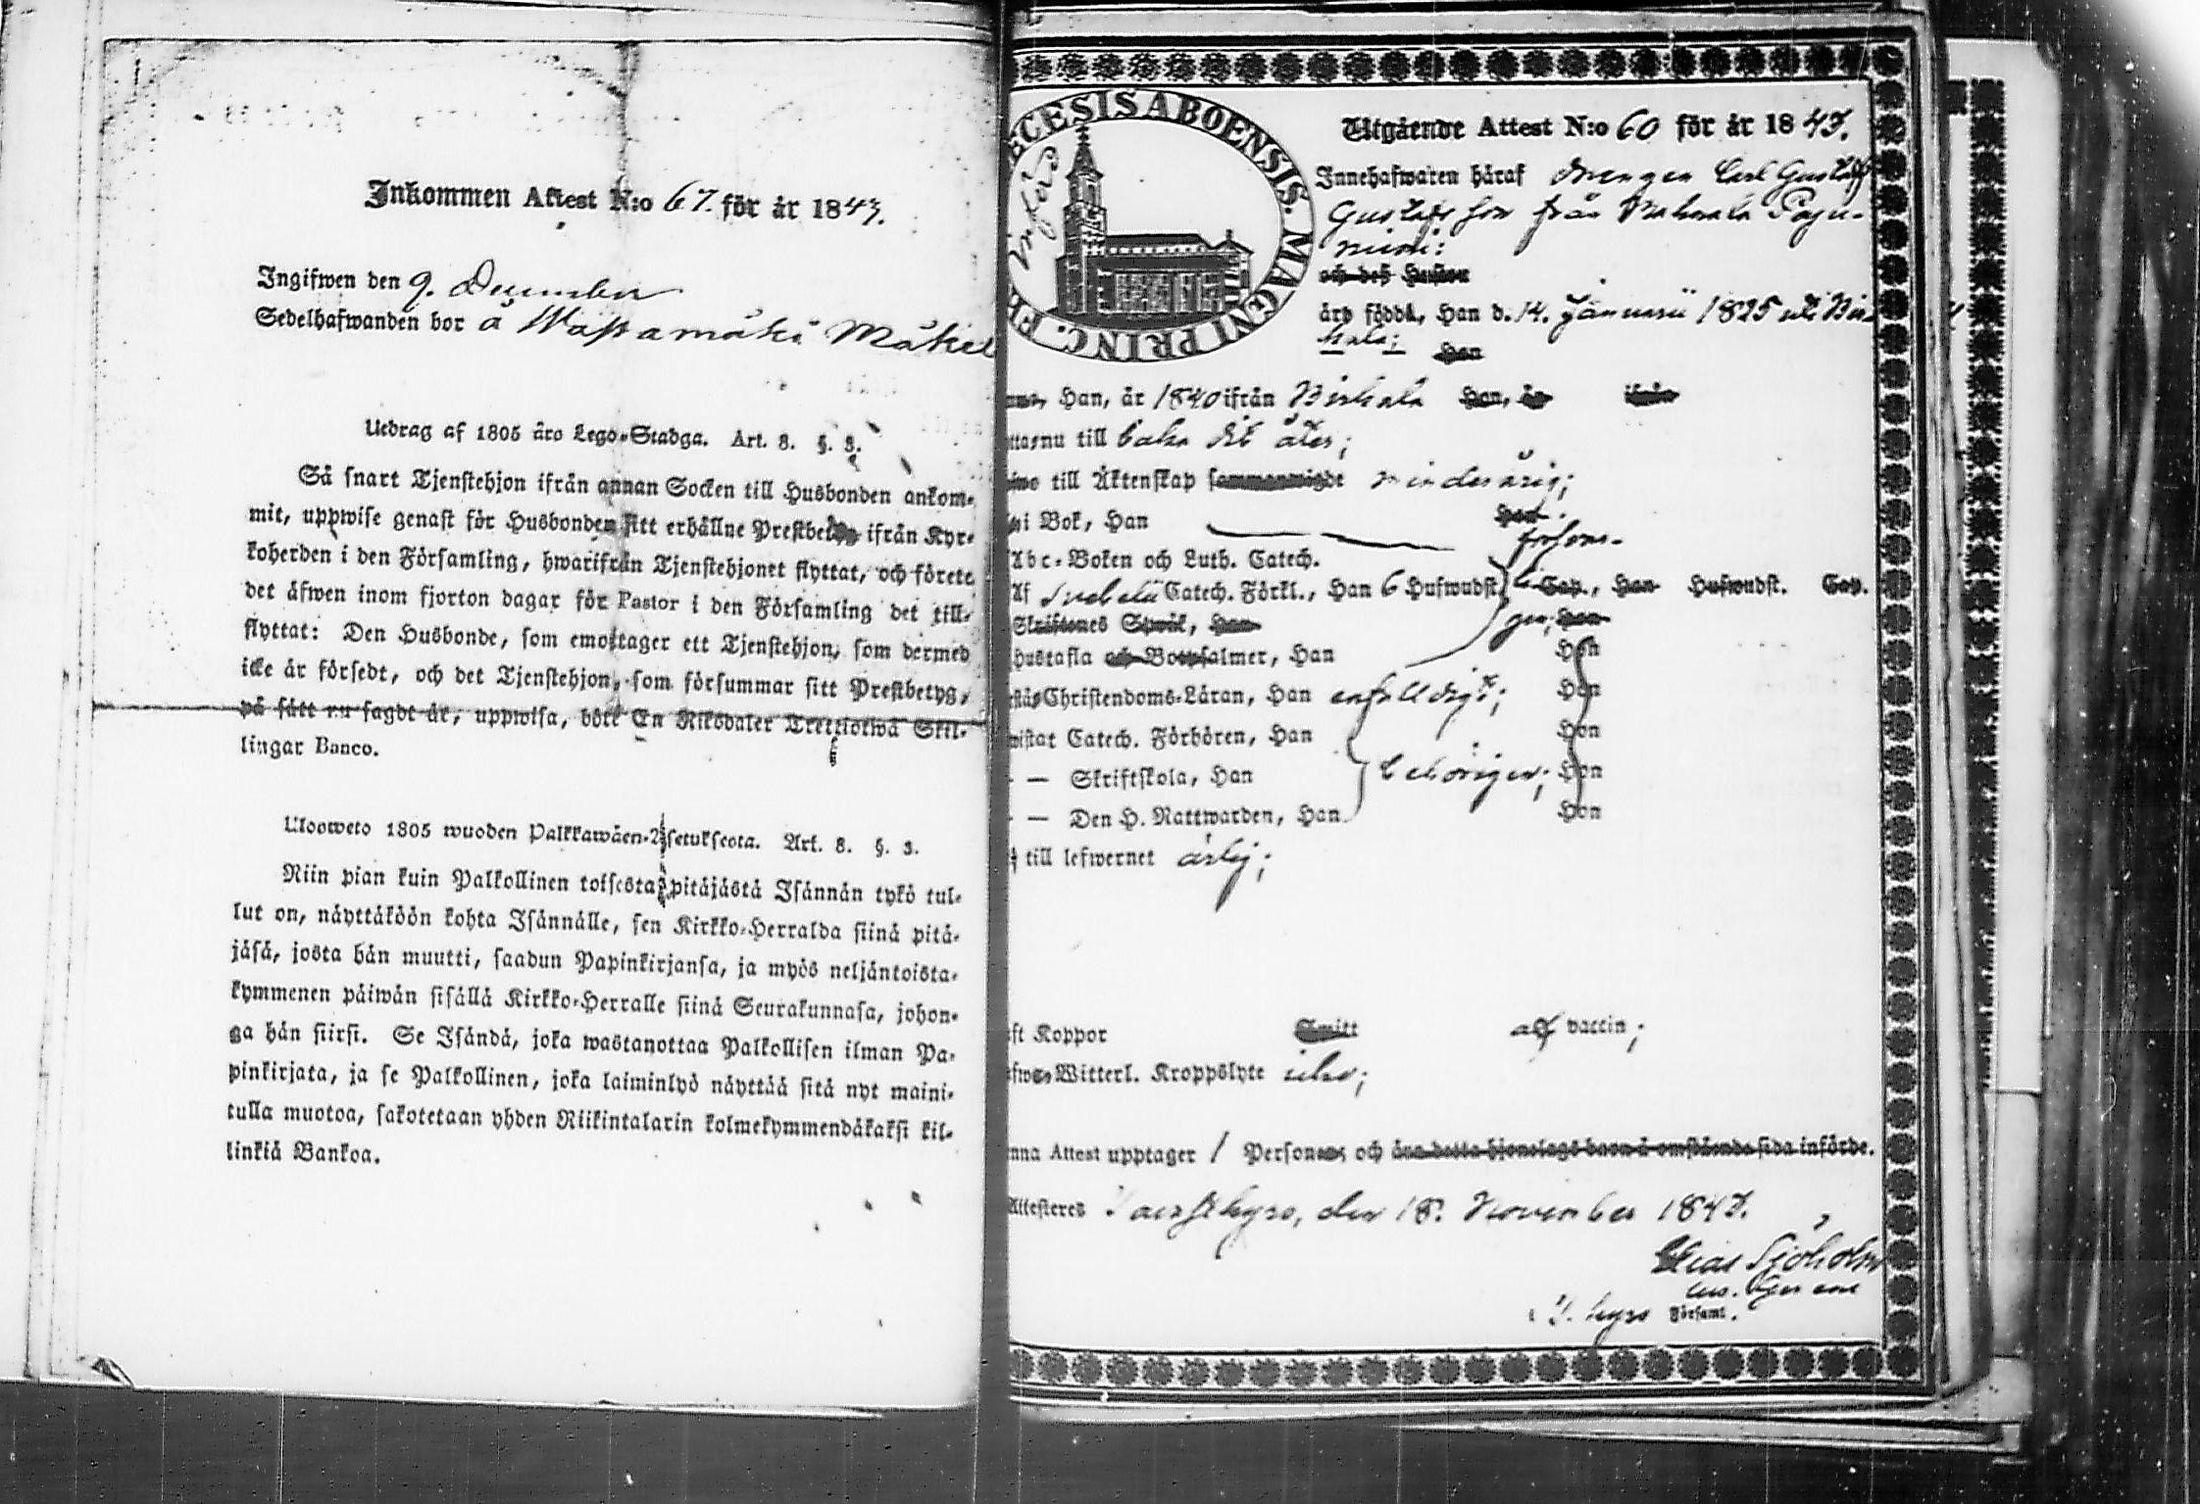 Inkommen Attest N:o 67. för år 1843.
Ingifwen den 9. December
Sedelhafwanden bor å Wassamäki Mäkel
Utdrag af 1805 års Lego-Stadga. Art. 8. §. 3.
Så snart Tjenstehjon ifrån annan Socken till Husbonden ankom-
mit, uppwise genast för Husbonden sitt erhållne Prestbetyg ifrån Kyr-
koherden i den Församling, hwarifrån Tjenstehjonet flyttat, och förete
det äfwen inom fjorton dagar för Pastor i den Församling det till-
flyttat: Den Husbonde, som emottager ett Tjenstehjon, som dermed
icke är försedt, och det Tjenstehjon, som försummar sitt Prestbetyg,
på sätt nu sagdt är, uppwisa, böte En Riksdaler Trettiotwå Skil-
lingar Banco.
Uloosweto 1805 wuoden Palkkawäen-Asetuksesta. Art. 8. §. 3.
Niin pian kuin Palkollinen toisesta pitäjästä Isännän tykö tul-
lut on, näyttäköön kohta Isännälle, sen Kirkko-Herralda siinä pitä-
jäsä, josta hän muutti, saadun Papinkirjansa, ja myös neljäntoista-
kymmenen päiwän sisällä Kirkko-Herralle siinä Seurakunnasa, johon-
ga hän siirsi. Se Isändä, joka wastanottaa Palkollisen ilman Pa-
pinkirjata, ja se Palkollinen, joka laiminlyö näyttää sitä nyt maini-
tulla muotoa, sakotetaan yhden Riikintalarin kolmekymmendäkaksi kil-
linkiä Bankoa.
ECESIS ABOENSIS. MAGNI PRINC. F
införd
Utgående Attest N:o 60 för år 1843.
Innehafwaren häraf drengen Carl Gustaf
Gustafsson från Pappi-
niemi:
och dess Hustru
äro född, Han d. 14. Januarii 1825 uti Bir-
kala; Hon
Han, år 1840 ifrån Birkala Hon, år ifrån
nu till baka dit åter;
till Äktenskap sammanwigde minderårig;
i Bok, Han Hon
försvar-
Abc-Boken och Luth. Catech.
Af Svebelii Catech. Förkl., Han 6 Hufwudst. Cap., Hon Hufwudst. Cap.
Skriftenes Språk, Han Hon
Hustafla och Botpsalmer, Han Hon
Christendoms-Läran, Han enfalldigt; Hon
wistat Catech. Förhören, Han Hon
— — Skriftskola, Han behörigen; Hon
— — Den H. Nattwarden, Han Hon
till lefwernet ärlig;
Koppor Smitt af vaccin;
Witterl. Kroppslyte icke;
nna Attest upptager 1 Personer och äro detta hjonelags barn å omstående sida införde.
Attesteres Tavastkyro, den 18. November 1843.
Elias Sjöholm
i T. kyro Församl.